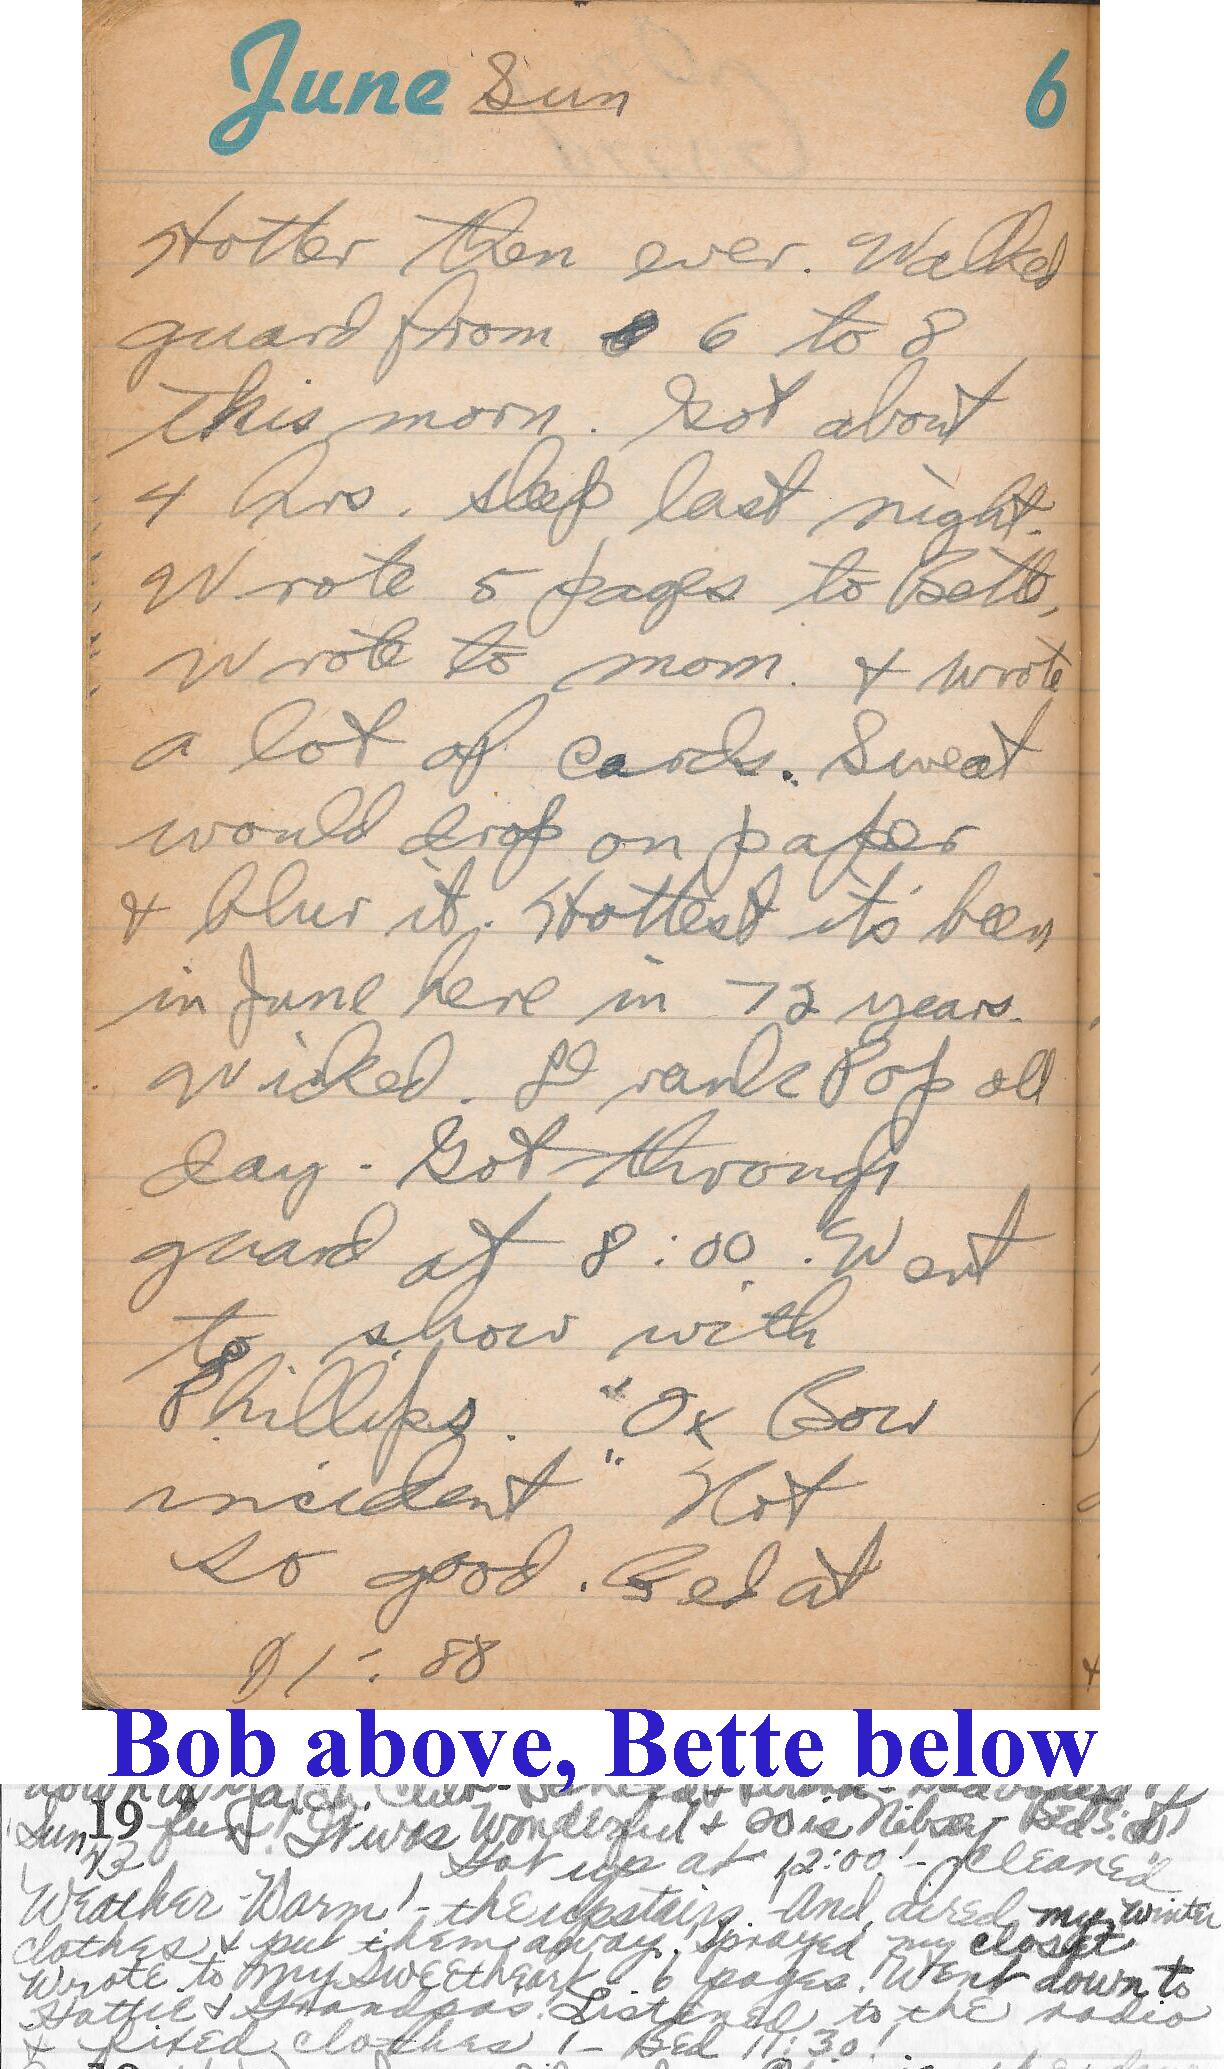 June Sun 6
Hotter then ever. Walked
guard from 6 to 8
this morn. Got about
4 hrs. sleep last night.
Wrote 5 pages to Bette,
wrote to mom. & wrote
a lot of cards. Sweat
would drop on paper
& blur it. Hottest it's been
in June here in 72 years.
Wicked. Drank Pop all
day. Got through
guard at 8:00. Went
to show with
Phillips. "Ox Bow
incident" Not
so good. Bed at
11:
Bob above, Bette below
Sun 19 fun! It was Wonderful & so is
43 Got up at 12:00! - "Cleaned"
Weather - Warm! - the upstairs. And aired my winter
clothes & put them away. Sprayed my closet
Wrote to my Sweetheart 6 pages. Went down to
Hattie & Grandpas. Listened to the radio
& fixed clothes! - Bed 11:30!